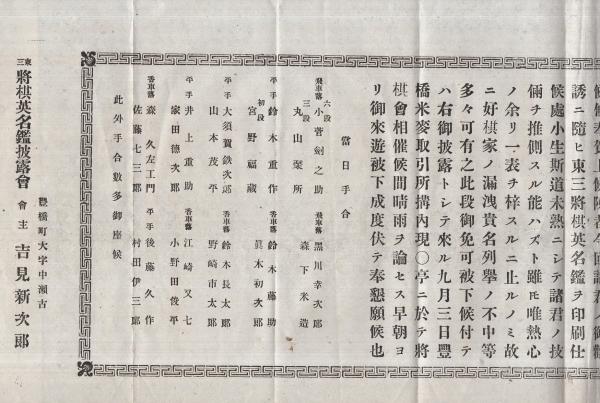 誘ニ隨ヒ東三將棋英名鑑ヲ印刷仕
候處小生斯道未熟ニシテ諸君ノ技
倆ヲ推測スル能ハズト雖モ唯熱心
ノ余リ一表ヲ梓スルニ止ルノミ故
ニ好棋家ノ漏洩貴名列擧ノ不中等
多々可有之此段御免可被下候付テ
ハ右御披露トシテ來ル九月三日豐
橋米麥取引所搆内現〇亭ニ於テ將
棋會相催候間晴雨ヲ論セス早朝ヨ
リ御來遊被下成度伏テ奉懇願候也
當日手合
飛車落 六段 小菅劍之助
三段 丸山梊所
平手 鈴木重作
初段 宮野福藏
平手 大須賀鉄次郎
山本茂平
平手 井上重助
家田德次郎
香車落 森久左エ門
佐藤七三郎
飛車落 黑川幸次郎
森下米造
香車落 鈴木藤助
眞木初次郎
香車落 鈴木長太郎
野崎市太郎
香車落 江崎又七
小野田俊平
平手 後藤久作
村田伊三郎
此外手合數多御座候
東三 將棋英名鑑披露會
豐橋町大字中瀬古
會主 吉見新次郎